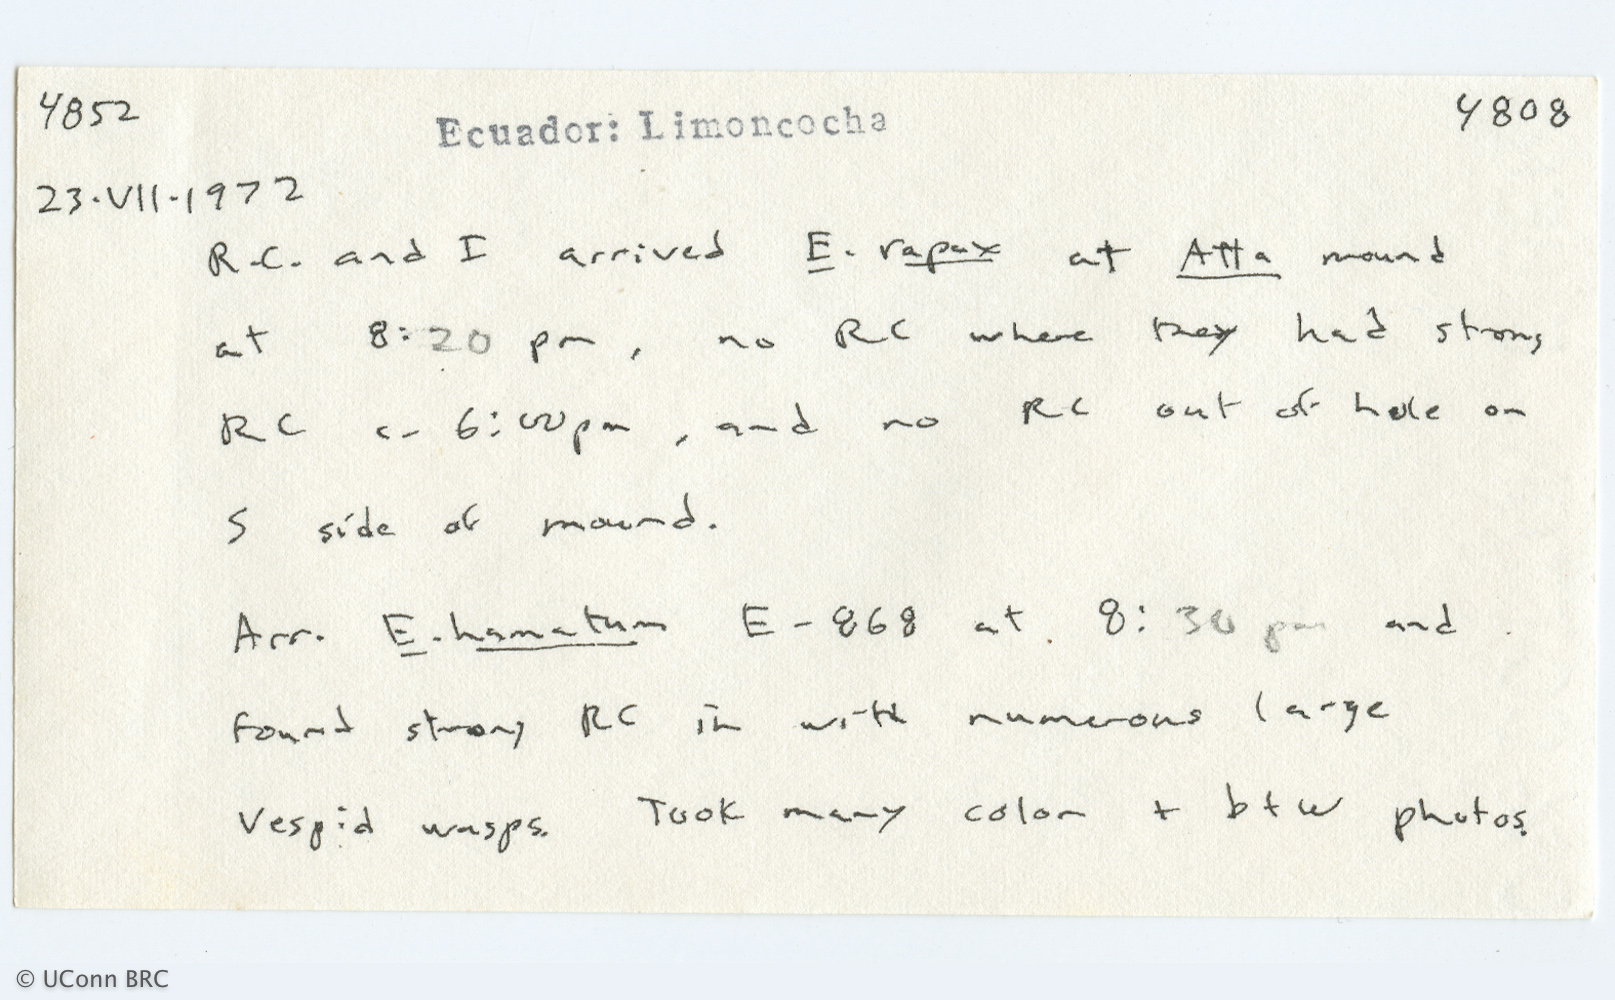 4852 Ecuador: Limoncocha 4808
23.VII.1972
R.C. and I arrived E. rapax at Atta mound
at 8:20 pm, no RC where they had strong
RC c- 6:00pm, and no RC out of hole on
S side of mound.
Arr. E. hamatum E-868 at 8:30 pm and
found strong RC in with numerous large
Vespid wasps. Took many color + b+w photos.
© UConn BRC